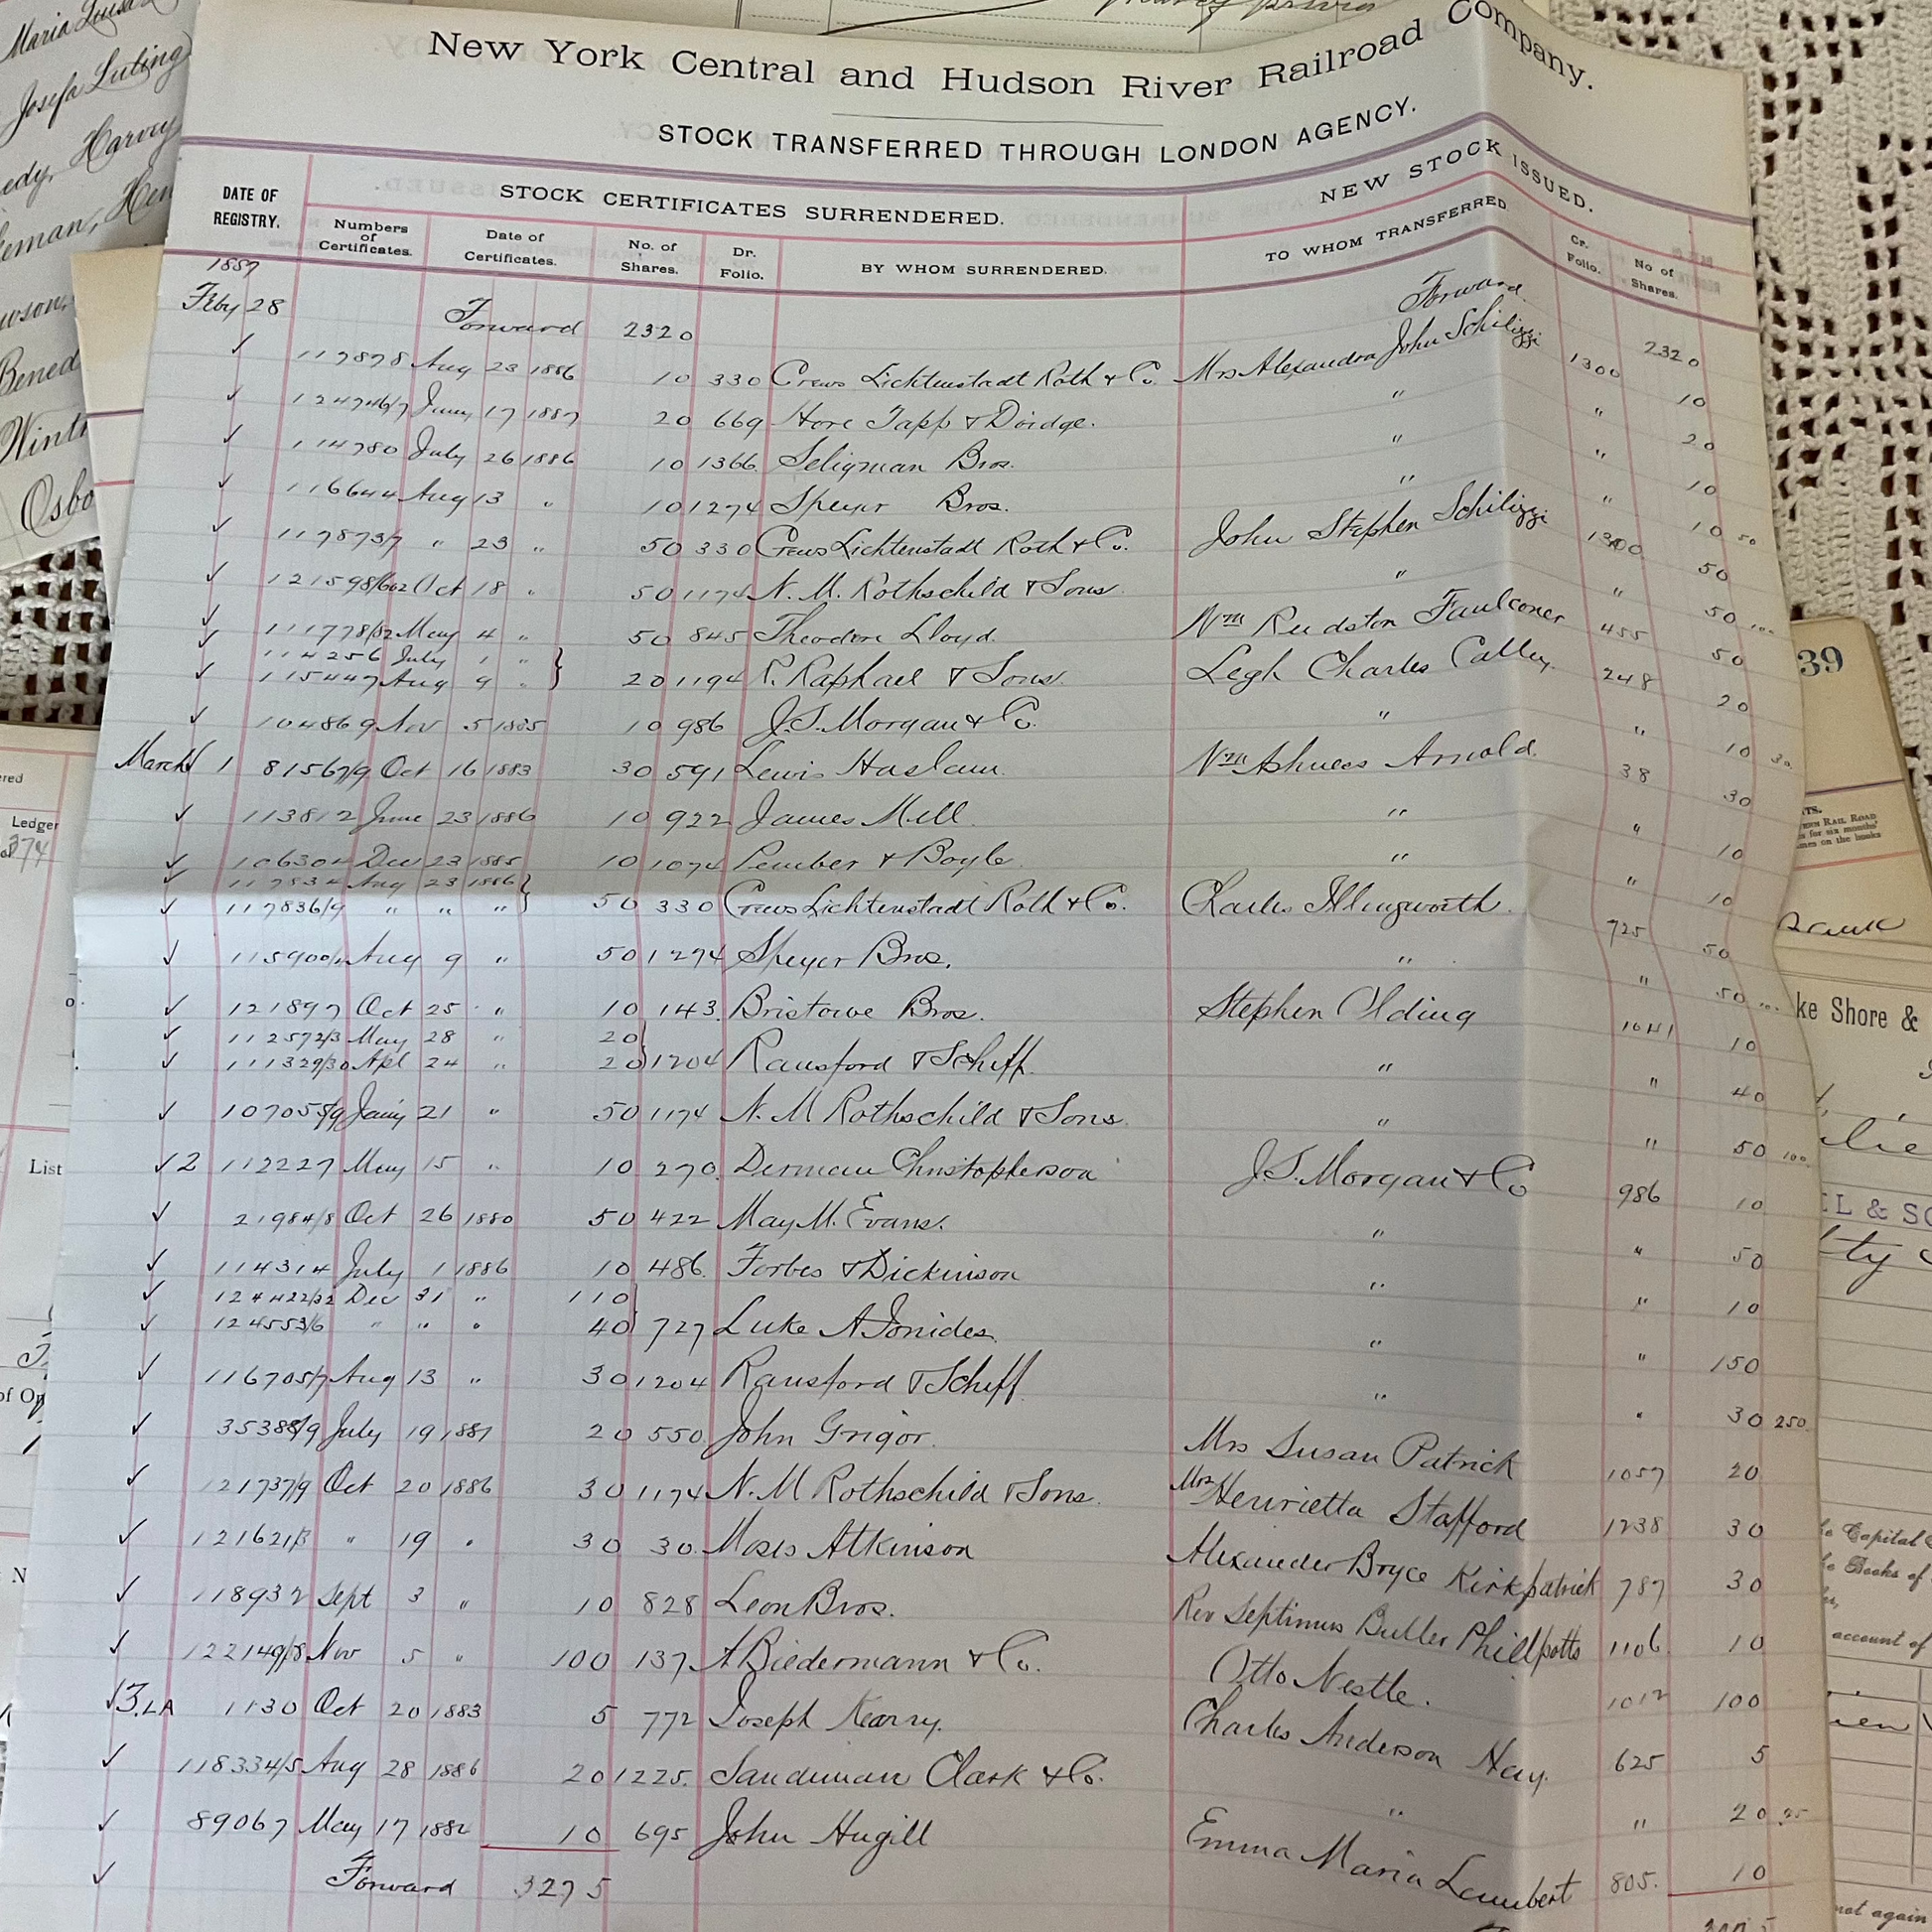 New York Central and Hudson River Railroad Company.
STOCK TRANSFERRED THROUGH LONDON AGENCY.
DATE OF REGISTRY. STOCK CERTIFICATES SURRENDERED. NEW STOCK ISSUED.
Numbers of Certificates. Date of Certificates. No. of Shares. Dr. Folio. BY WHOM SURRENDERED. TO WHOM TRANSFERRED Cr. Folio. No of Shares.
1887
Feby 28 Forward 2320 Forward 2320
✓ 117878 Aug 23 1886 10 330 Crews Lichtenstadt Roth & Co. Mrs Alexandra John Schilizzi 1300 10
✓ 124746/7 Jany 17 1887 20 669 Hore Tapp & Doidge. " " 20
✓ 114780 July 26 1886 10 1366 Seligman Bros. " " 10
✓ 116644 Aug 13 " 10 1274 Speyer Bros. " " 10 50
✓ 117873/7 " 23 " 50 330 Crews Lichtenstadt Roth & Co. John Stephen Schilizzi 1300 50
✓ 121598/602 Oct 18 " 50 1174 N. M. Rothschild & Sons " " 50 100
✓ 111778/82 May 4 " 50 845 Theodore Lloyd. Wm Rudston Faulconer 455 50
✓ 114256 July 1 " }
✓ 115447 Aug 9 " } 20 1194 R. Raphael & Sons. Legh Charles Calley 248 20
✓ 104869 Nov 5 1885 10 986 J.S. Morgan & Co. " " 10 30
March ✓ 1 81567/9 Oct 16 1883 30 591 Lewis Haslam. Wm Arnold. 38 30
✓ 113812 June 23 1886 10 922 James Mill " " 10
✓ 106304 Dec 23 1885 10 1074 Pember & Boyle. " " 10
✓ 117834 Aug 23 1886 }
✓ 117836/9 " " " } 50 330 Crews Lichtenstadt Roth & Co. Charles Illingworth. 725 50
✓ Aug 9 " 50 1274 Speyer Bros. " " 50 100
✓ 121897 Oct 25 " 10 143 Bristowe Bros. Stephen Olding 1041 10
✓ 112572/3 May 28 " 20 }
✓ 111329/30 Apl 24 " 20 } 1204 Ransford & Schiff. " " 40
✓ 107055/9 Jany 21 " 50 1174 N. M Rothschild & Sons. " " 50 100
✓ 2 112227 May 15 " 10 270 Derman Christopherson J.S. Morgan & Co 986 10
✓ 21984/8 Oct 26 1880 50 422 May M. Evans. " " 50
✓ 114314 July 1 1886 10 486 Forbes & Dickinson " " 10
✓ 124422/32 Dec 31 " 110 }
✓ 124553/6 " " " 40 } 727 Luke A Ionides. " " 150
✓ 116705/7 Aug 13 " 30 1204 Ransford & Schiff " " 30 250
✓ 35388/9 July 19 1881 20 550 John Grigor. Mrs Susan Patrick 1057 20
✓ 121737/9 Oct 20 1886 30 1174 N. M Rothschild & Sons. Mrs Henrietta Stafford 1238 30
✓ 121621/3 " 19 " 30 30 Moses Atkinson Alexander Bryce Kirkpatrick 787 30
✓ 118932 Sept 3 " 10 828 Leon Bros. Rev Septimus Buller Phillpotts 1106 10
✓ Nov 5 " 100 137 A Biedermann & Co. Otto Nestle. 1012 100
✓ 3. LA 1130 Oct 20 1883 5 772 Joseph Kearry. Charles Anderson Hay. 625 5
✓ 118334/5 Aug 28 1886 20 1225 Sandeman Clark & Co. " " 20 25
✓ 89067 May 17 1882 10 695 John Hugill Emma Maria Lambert 805 10
✓ Forward 3275
Maria
Josefa Luling
Harvey
Osbo
Ledger
374
List
39
ke Shore &
L & SO
Capital
Books of
account of
not again